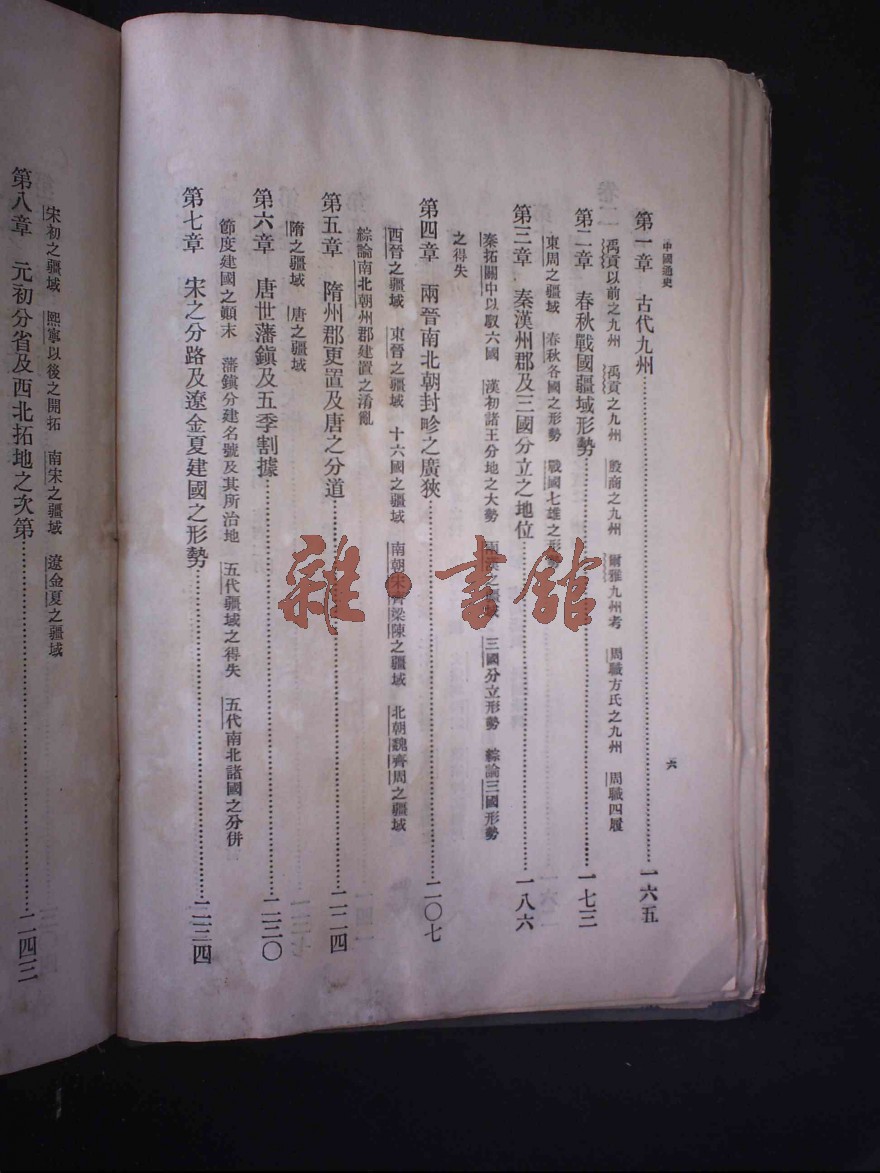 中國通史
六
第一章　古代九州……一六五
禹貢以前之九州　禹貢之九州　殷商之九州　爾雅九州考　周職方氏之九州　周職四履
第二章　春秋戰國疆域形勢……一七三
東周之疆域　春秋各國之形勢　戰國七雄之形勢
第三章　秦漢州郡及三國分立之地位……一八六
秦拓關中以馭六國　漢初諸王分地之大勢　兩漢之疆域　三國分立形勢　綜論三國形勢
之得失
第四章　兩晉南北朝封畛之廣狹……二〇七
西晉之疆域　東晉之疆域　十六國之疆域　南朝宋齊梁陳之疆域　北朝魏齊周之疆域
綜論南北朝州郡建置之淆亂
第五章　隋州郡更置及唐之分道……二二四
隋之疆域　唐之疆域
第六章　唐世藩鎮及五季割據……二三〇
節度建國之顛末　藩鎮分建名號及其所治地　五代疆域之得失　五代南北諸國之分併
第七章　宋之分路及遼金夏建國之形勢……二三四
宋初之疆域　熙寧以後之開拓　南宋之疆域　遼金夏之疆域
第八章　元初分省及西北拓地之次第……二四三
雜·書館